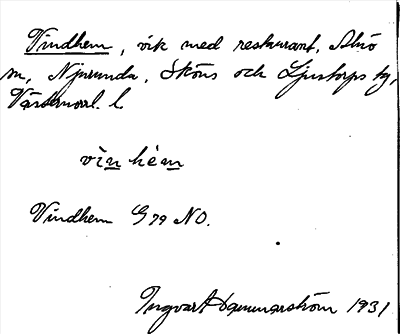 Vindhem, vik med restaurant, Alnö
sn, Njurunda, Sköns och Ljustorps tg,
Västernorrl. l.
vìn hèm
Vindhem G 79 NO.
Ingvar Hammarström 1931